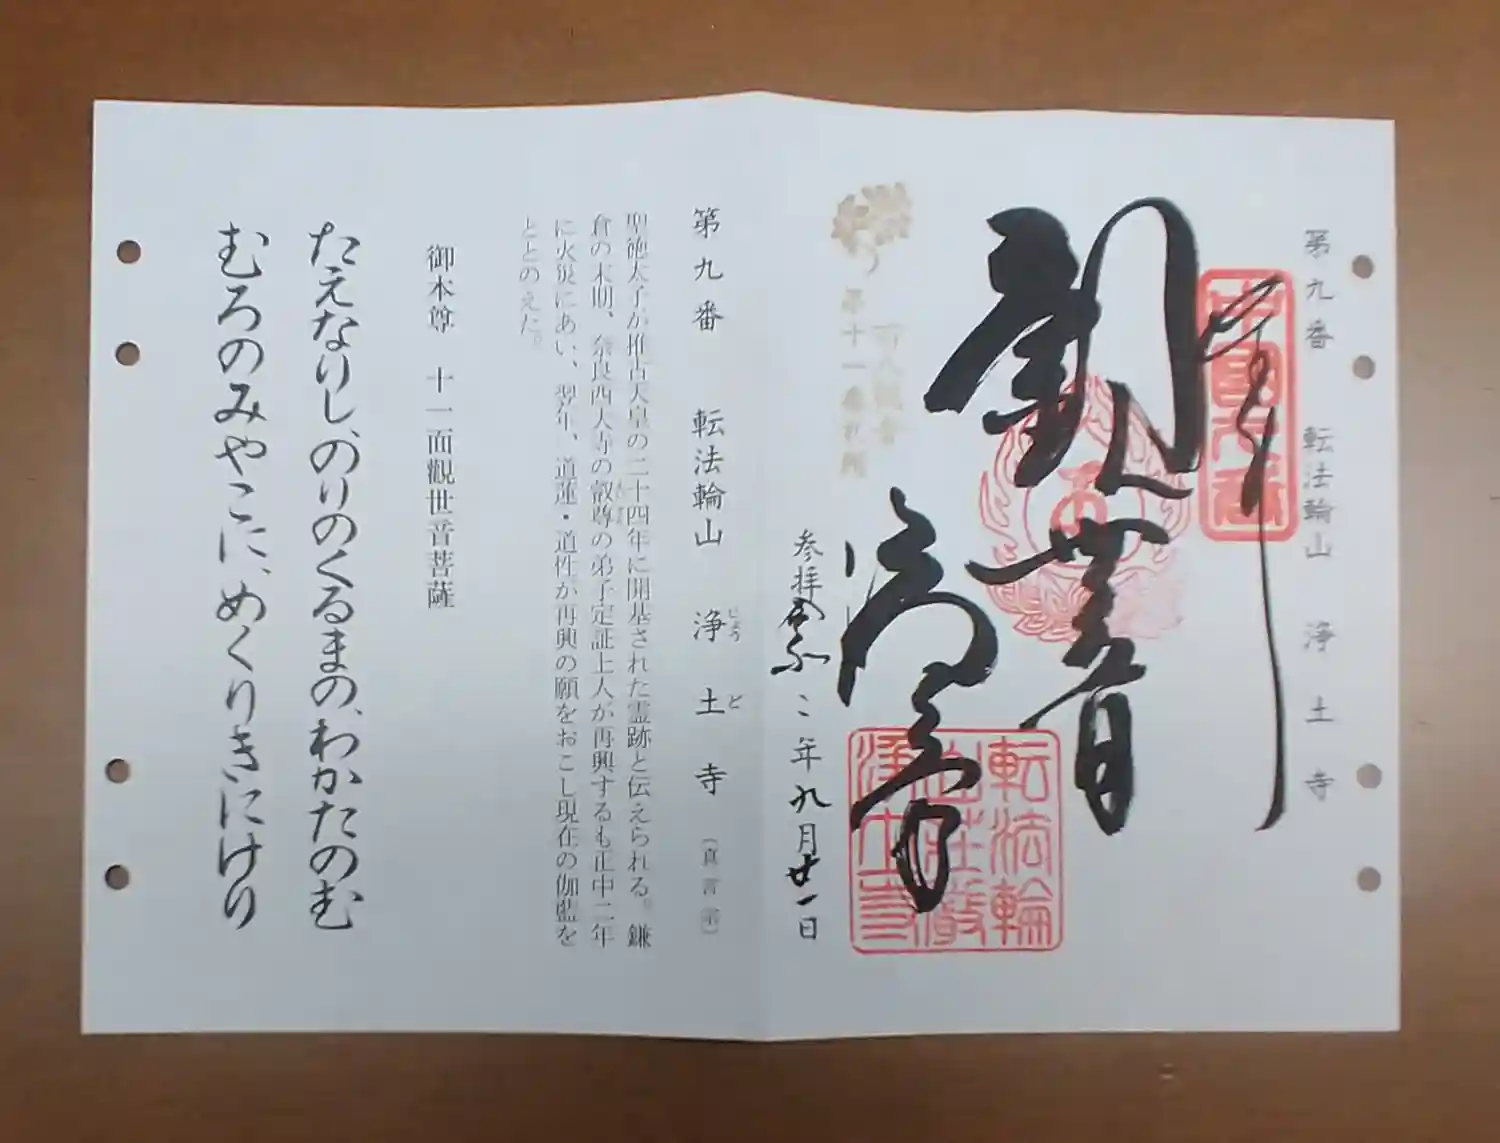 第九番 転法輪山 浄土寺
奉
中国九番
観世音
転法輪
山荘厳
浄土寺
満願寺
百八観音
第十一番札所
参拝 令和二年九月廿一日
第九番 転法輪山 浄土寺 (真言宗)
じょう ど
聖徳太子が推古天皇の二十四年に開基された霊跡と伝えられる。鎌
倉の末期、奈良西大寺の叡尊の弟子定証上人が再興するも正中二年
えいそん
に火災にあい、翌年、道蓮・道性が再興の願をおこし現在の伽藍を
ととのえた。
御本尊 十一面観世音菩薩
たえなりし、のりのくるまの、わかたのむ
むろのみやこに、めくりきにけり